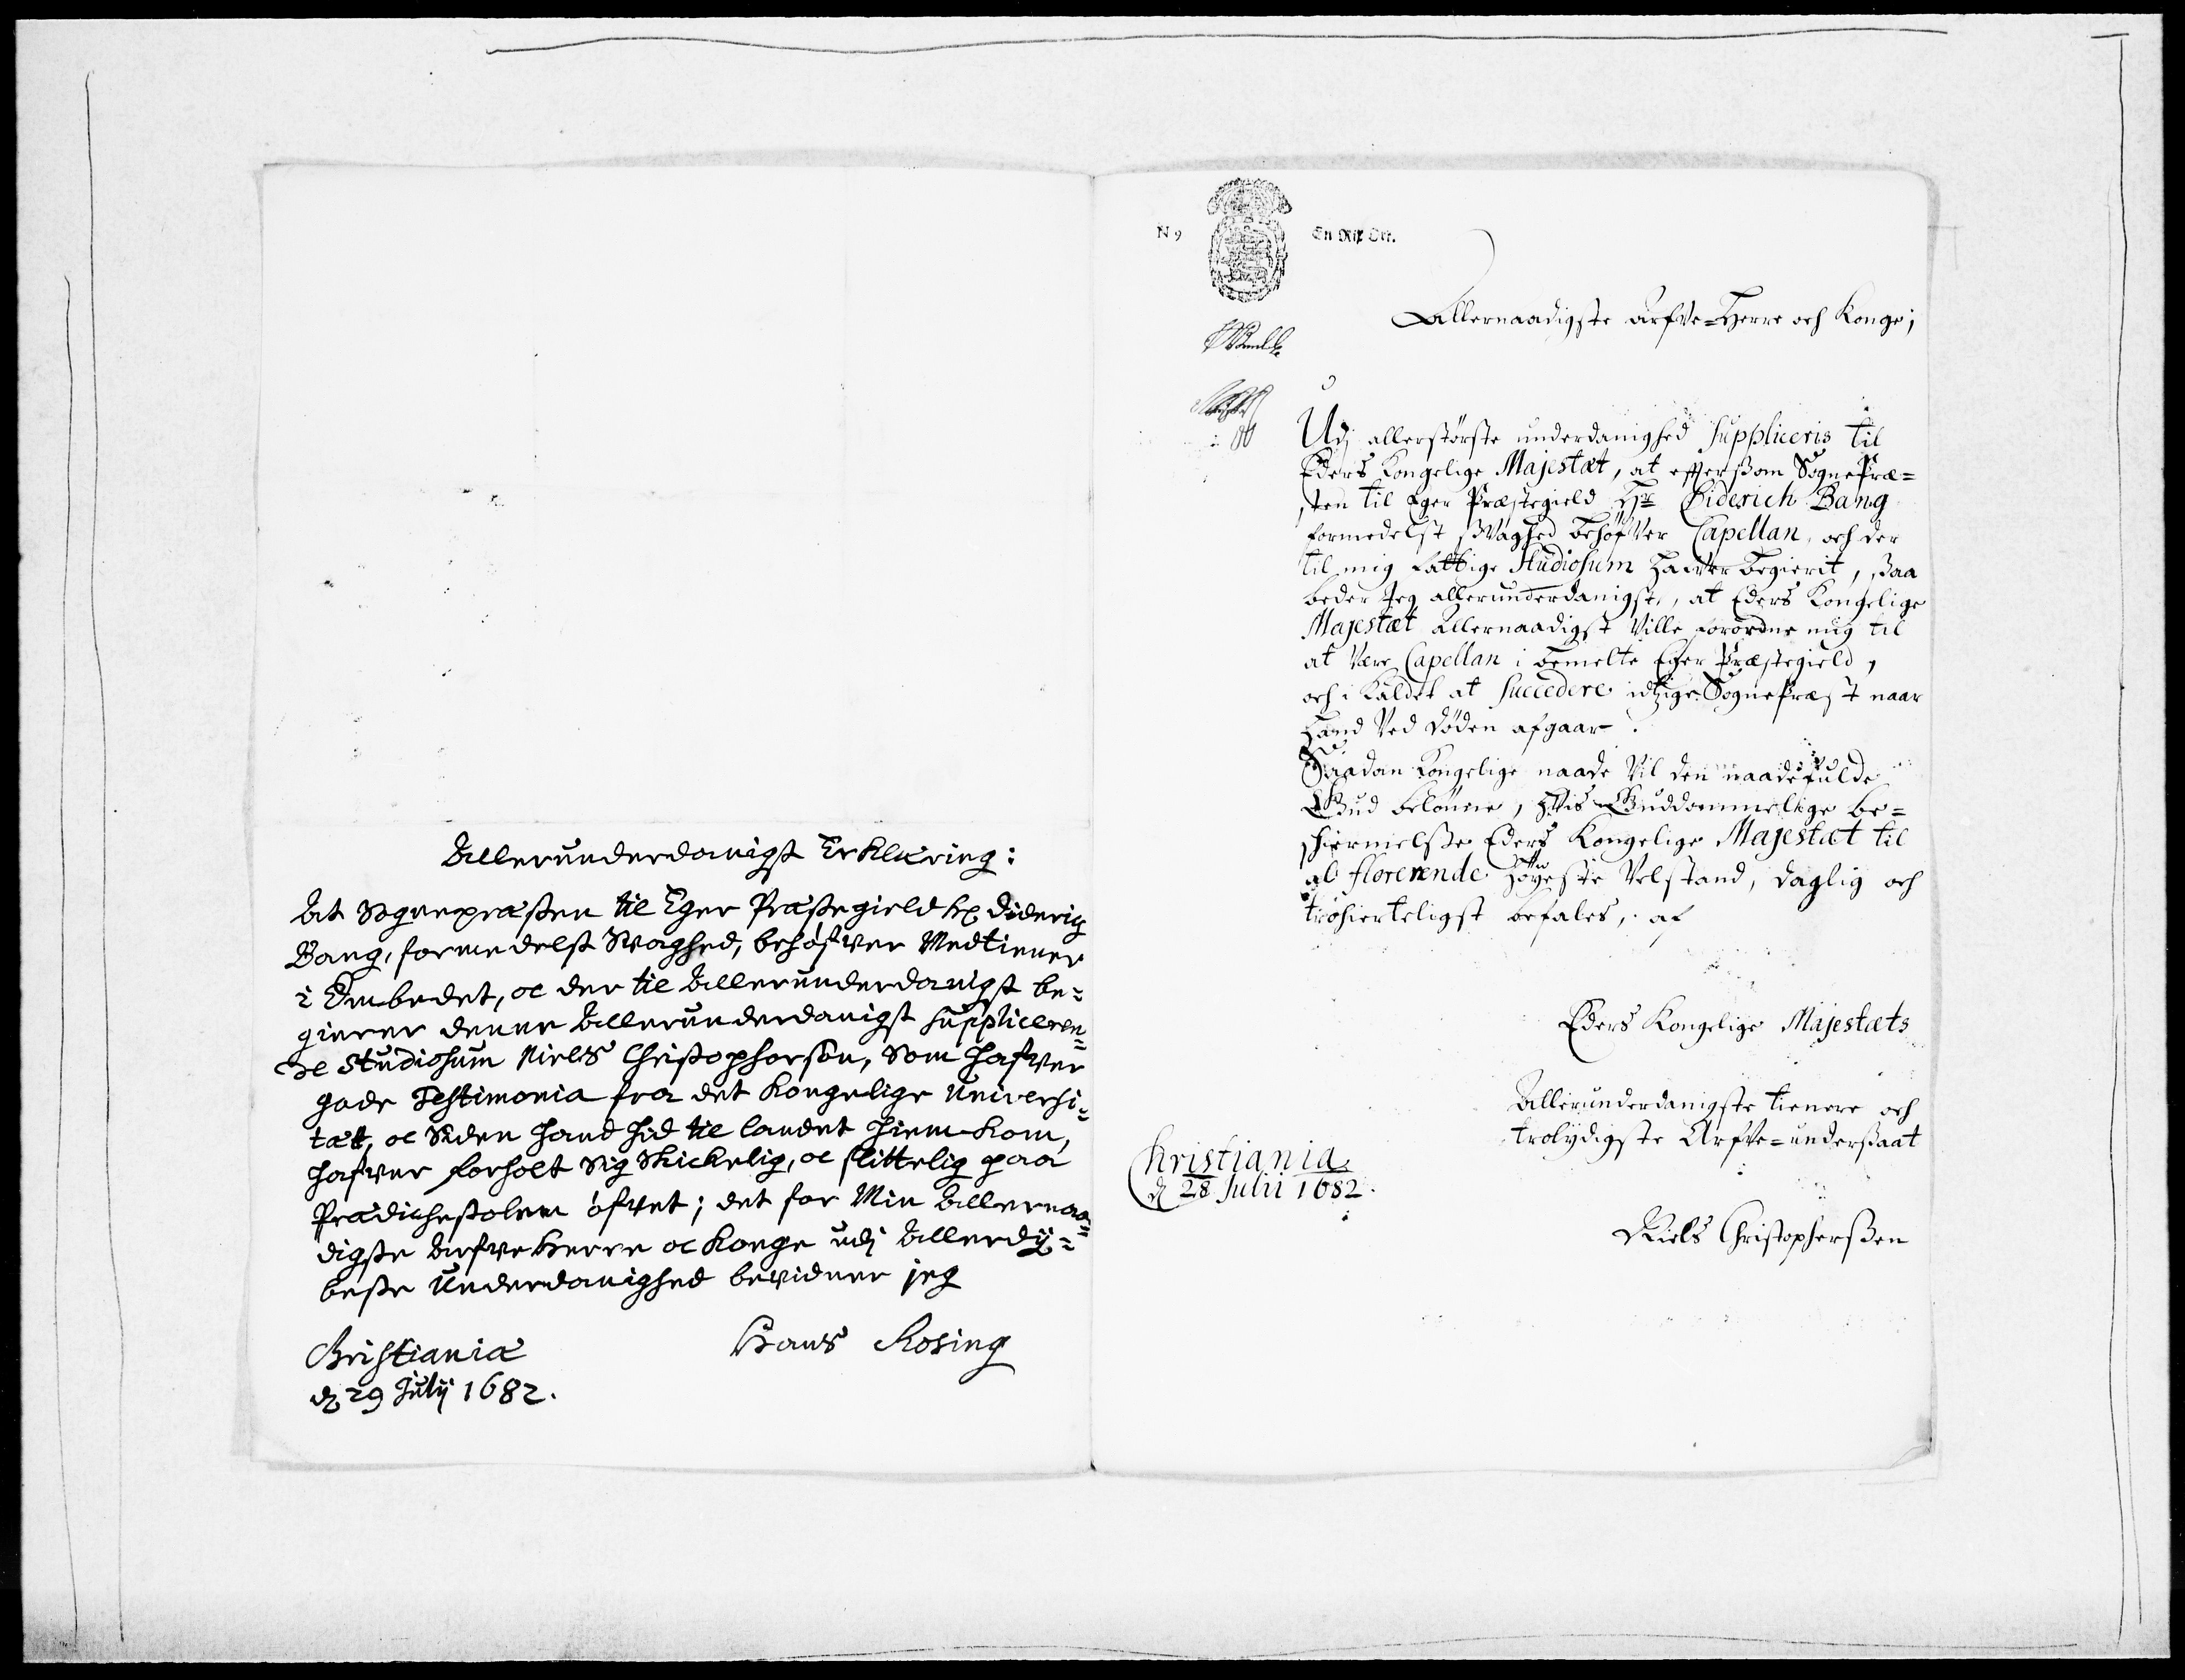 Allerunderdanigst Erklæring:
At Sognepræsten til Eger Præstegield Hr Diderig
Bang, formedelst Svaghed, behøfver Medtiener
i Embedet, oc der til Allerunderdanigst be=
gierer denne Allerunderdanigst Suppliceren=
de Studiosum Niels Christophersøn, Som hafver
gode Testimonia fra det Kongelige Universi=
tæt, oc Siden hand hid til landet hiem kom,
hafver forholt Sig Skickelig, oc flittelig paa
Prædichestolen øfvet; det for Min Allernaa=
digste Arfve Herre oc Konge udj Allerdy=
beste Underdanighed bevidner jeg
Hans Rosing
Christiania
d 29 Julij 1682.
N 9 En Rix Ort.
Allernaadigste Arfve-Herre och Konge;
Udj allerstörste underdanighed Suppliceris til
Eders Kongelige Majestæt, at effterssom SognePræ=
sten til Eger Præstegield Hr Diderich Bang
formedelst svaghed behöfver Capellan, och der
til mig fattige Studiosum hafver begierit, saa
beder Jeg allerunderdanigst, at Eders Kongelige
Majestæt Allernaadigst Ville forordne mig til
at Være Capellan i bemelte Eger Præstegield,
och i Kaldet at Succedere idtzige SognePræst naar
Hand Ved döden afgaar.
Saadan Kongelige naade Vil den naadefulde
Gud belönne, Hvis Guddommelige be=
shiermelsse Eders Kongelige Majestæt til
al florerende Höyeste Velstand, daglig och
tröhierteligst befales, af
Eders Kongelige Majestæts
Allerunderdanigste tienere och
trolydigste Arfve-underssaat
Christiania
d 28 Julii 1682.
Niels Christopherssen